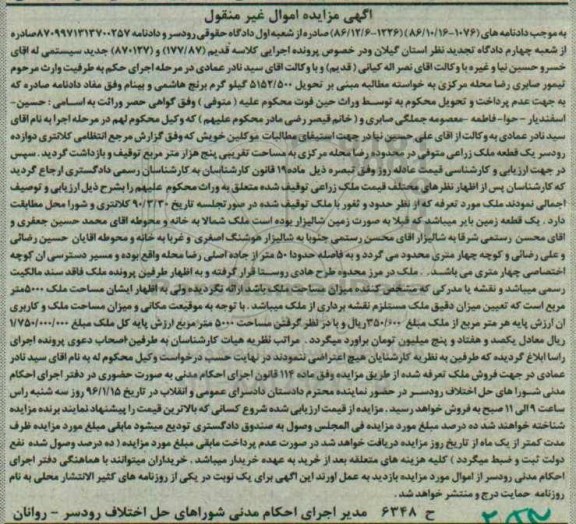 آگهی مزایده اموال غیر منقول
به موجب دادنامه های (۱۰۷۶-۸۶/۱۰/۱۶) (۱۲۲۶-۸۶/۱۲/۶) صادره از شعبه اول دادگاه حقوقی رودسر و دادنامه ۸۷۰۹۹۷۱۳۱۳۷۰۰۲۵۷صادره
از شعبه چهارم دادگاه تجدید نظر استان گیلان ودر خصوص پرونده اجرایی کلاسه قدیم (۱۷۷/۸۷) و (۸۷۰۱۳۷) جدید سیستمی له اقای
خسرو حسین نیا و غیره با وکالت اقای نصر اله کیانی ( قدیم) و با وکالت اقای سید نادر عمادی در مرحله اجرای حکم به طرفیت وارث مرحوم
تیمور صابری رضا محله مرکزی به خواسته مطالبه مبنی بر تحویل ۵۱۵۲/۵۰۰ گیلو گرم برنج هاشمی و بینام وفق مفاد دادنامه صادره که
به جهت عدم پرداخت و تحویل محکوم به توسط وراث حین فوت محکوم علیه ( متوفی ) وفق گواهی حصر وراثت به اسامی : حسین-
اسفندیار -حوا-فاطمه -معصومه جملگی صابری و ( خانم قیصر رضی مادر محکوم علیهم ) که وکیل محکوم لهم در مرحله اجرا به نام اقای
سید نادر عمادی به وکالت از اقای علی حسین نیا در جهت استیفای مطالبات موکلین خویش که وفق گزارش مرجع انتظامی کلانتری دوازده
رودسر یک قطعه ملک زراعی متوفی در محدود رضا محله مرکزی به مساحت تقریبی پنج هزار متر مربع توقیف و بازداشت گردید. سپس
در جهت ارزیابی و کارشناسی قیمت عادله روز وفق تبصره ذیل ماده۱۹ قانون کارشناسان به کارشناسان رسمی دادگستری ارجاع گردید
که کارشناسان پس از اظهار نظرهای مختلف قیمت ملک زراعی توقیف شده متعلق به وراث محکوم علیهم را بشرح ذیل ارزیابی و توصیف
اجمالی نمودند ملک مورد تعرفه که از نظر حدود و ثغور با ملک توقیف شده در صورتجلسه تاریخ ۹۰/۳/۳۰ کلانتری و شورا محل مطابقت
دارد . یک قطعه زمین بایر میباشد که قبلا به صورت زمین شالیزار بوده است ملک شمالا به خانه و محوطه اقای محمد حسین جعفری و
اقای محسن رستمی شرقا به شالیزار اقای محسن رستمی جنوبا به شالیزار هوشنگ اصغری و غربا به خانه و محوطه اقایان حسین رضائی
و علی رضائی و کوچه چهار متری محدود می گردد و به فاصله حدودا ۵۰ متر از جاده اصلی رضا محله واقع بوده و مسیر دسترسی ان کوچه
اختصاصی چهار متری می باشد. . ملک در مرز محدوه طرح هادی روستا قرار گرفته و به اظهار طرفین پرونده ملک فاقد سند مالکیت
رسمی میباشد و نقشه یا مدرکی که مشخص کننده میزان مساحت ملک باشد ارائه نگردیده ولی به اظهار ایشان مساحت ملک ۵۰۰۰متر
مربع است که تعیین میزان دقیق ملک مستلزم نقشه برداری از ملک میباشد . با توجه به موقعیت مکانی و میزان مساحت ملک و کاربری
ان ارزش پایه هر متر مربع از ملک مبلغ ۳۵۰/۶۰۰ریال و با در نظر گرفتن مساحت ۵۰۰۰ متر مربع ارزش پایه کل ملک مبلغ ۱/۷۵۰/۰۰۰/۰۰۰
ریال معادل یکصد و هفتاد و پنج میلیون تومان براورد میگردد . مراتب نظریه هیات کارشناسان به طرفین اصحاب دعوی پرونده اجرای
راسا ابلاغ گردیده که طرفین به نظریه کارشنایان هیچ اعتراضی ننمودند در نهایت حسب درخواست وکیل محکوم له به نام اقای سید نادر
عمادی در جهت فروش ملک تعرفه شده از طریق مزایده وفق ماده ۱۱۴ قانون اجرای احکام مدنی به صورت حضوری در دفتر اجرای احکام
مدنی شورا های حل اختلاف رودسر در حضور نماینده محترم دادستان دادسرای عمومی و انقلاب در تاریخ ۹۶/۱/۱۵ روز سه شنبه راس
ساعت ۹ الی ۱۱ صبح به فروش خواهد رسید . مزایده از قیمت ارزیابی شده شروع کسانی که بالاترین قیمت را پیشنهاد نمایند برنده مزایده
شناخته خواهند شد ده درصد مبلغ مورد مزایده فی المجلس وصول به صندوق دادگستری تودیع میشود مابقی مبلغ مورد مزایده ظرف
مدت کمتر از یک ماه از تاریخ روز مزایده دریافت خواهد شد در صورت عدم پرداخت مابقی مبلغ مورد مزایده ( ده درصد وصول شده نفع
دولت ثبت و ضبط میگردد ) کلیه هزینه های متعلقه بعد از خرید به عهده خریدار میباشد . خریداران میتوانند با هماهنگی دفتر اجرای
احکام مدنی رودسر از اموال مورد مزایده بازدید به عمل اورند این آگهی برای یک نوبت در یکی از روزنامه های کثیر الانتشار محلی به نام
روزنامه حمایت درج و منتشر خواهد شد .
ح ۶۳۴۸ مدیر اجرای احکام مدنی شوراهای حل اختلاف رودسر - روانان